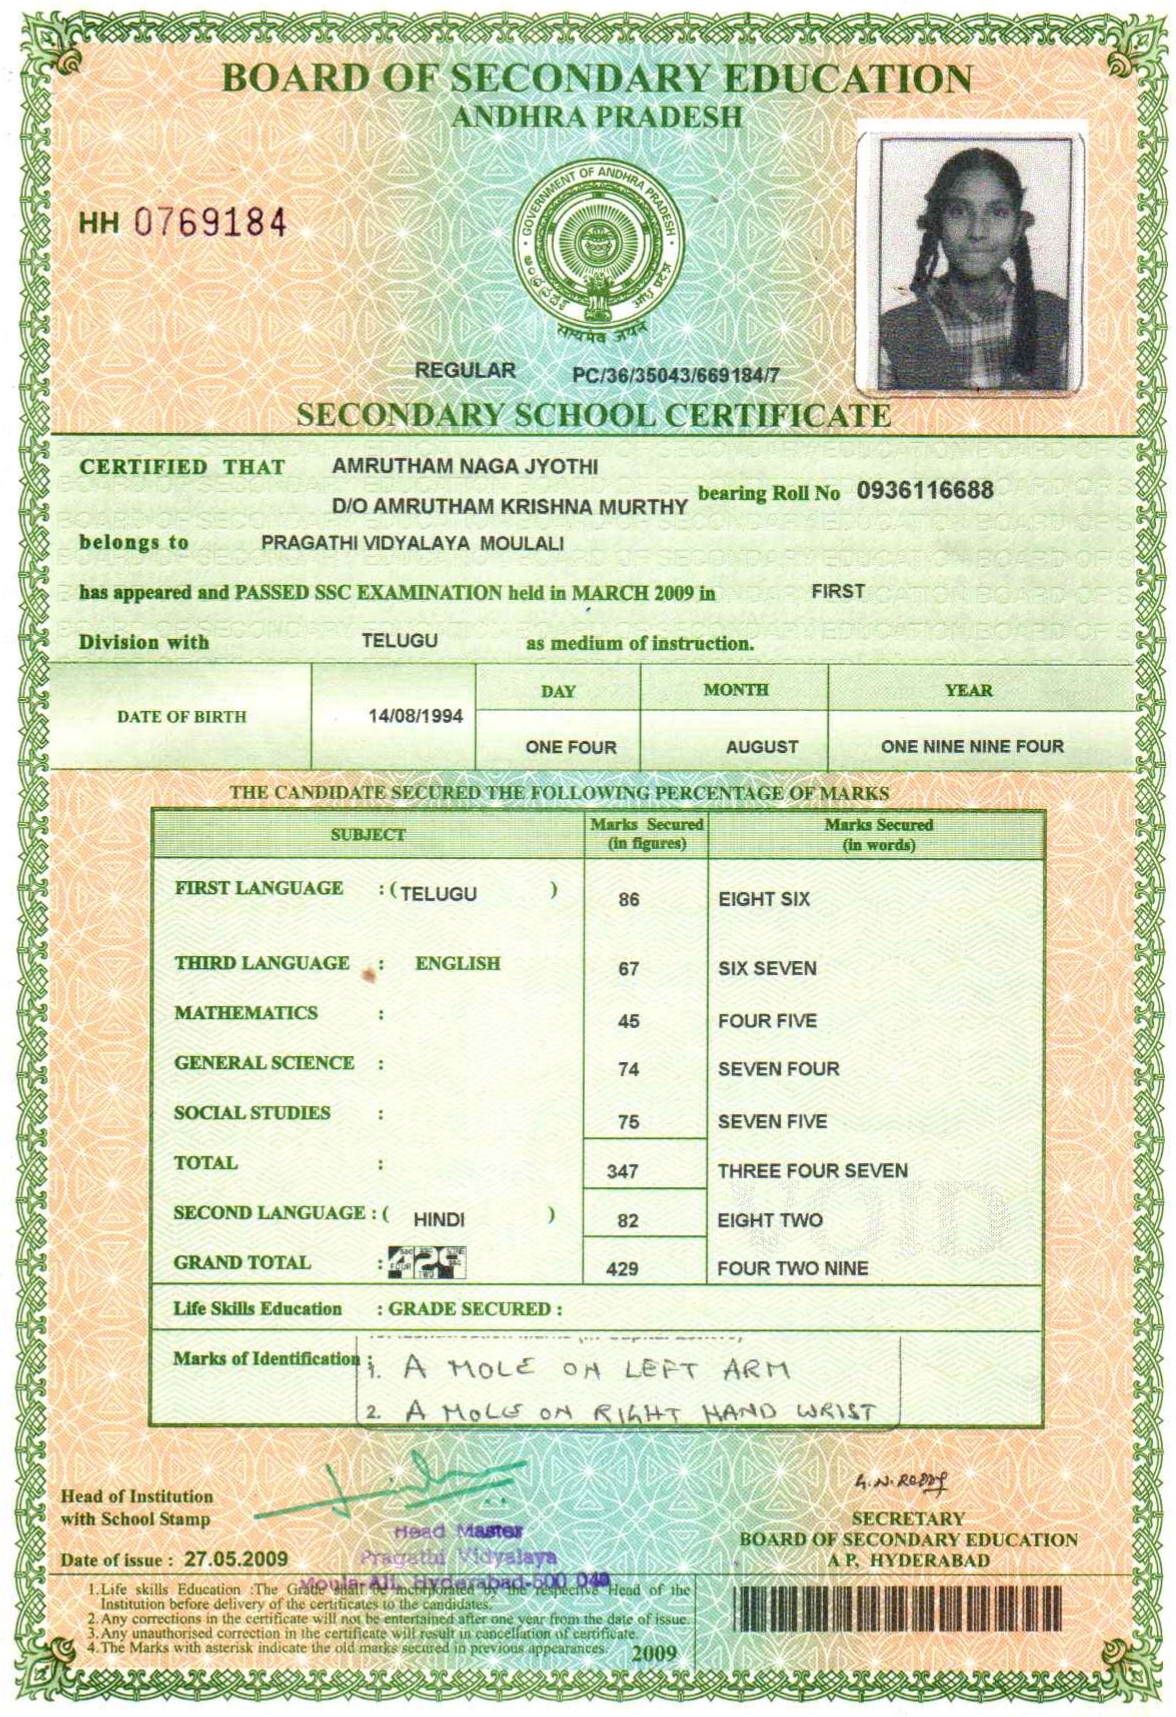 BOARD OF SECONDARY EDUCATION
ANDHRA PRADESH
HH 0769184
GOVERNMENT OF ANDHRA PRADESH
सत्यमेव जयते
REGULAR PC/36/35043/669184/7
SECONDARY SCHOOL CERTIFICATE
CERTIFIED THAT AMRUTHAM NAGA JYOTHI
D/O AMRUTHAM KRISHNA MURTHY bearing Roll No 0936116688
belongs to PRAGATHI VIDYALAYA MOULALI
has appeared and PASSED SSC EXAMINATION held in MARCH 2009 in FIRST
Division with TELUGU as medium of instruction.
DAY MONTH YEAR
DATE OF BIRTH 14/08/1994
ONE FOUR AUGUST ONE NINE NINE FOUR
THE CANDIDATE SECURED THE FOLLOWING PERCENTAGE OF MARKS
SUBJECT Marks Secured (in figures) Marks Secured (in words)
FIRST LANGUAGE : ( TELUGU ) 86 EIGHT SIX
THIRD LANGUAGE : ENGLISH 67 SIX SEVEN
MATHEMATICS : 45 FOUR FIVE
GENERAL SCIENCE : 74 SEVEN FOUR
SOCIAL STUDIES : 75 SEVEN FIVE
TOTAL : 347 THREE FOUR SEVEN
SECOND LANGUAGE : ( HINDI ) 82 EIGHT TWO
GRAND TOTAL : 429 429 FOUR TWO NINE
Life Skills Education : GRADE SECURED :
Marks of Identification : 1. A MOLE ON LEFT ARM
2. A MOLE ON RIGHT HAND WRIST
G.N. REDDY
Head of Institution
with School Stamp
Head Master
Pragathi Vidyalaya
Moula-Ali, Hyderabad-500 040
SECRETARY
BOARD OF SECONDARY EDUCATION
A P, HYDERABAD
Date of issue : 27.05.2009
1.Life skills Education :The Grade shall be incorporated by the respective Head of the
Institution before delivery of the certificates to the candidates.
2.Any corrections in the certificate will not be entertained after one year from the date of issue.
3.Any unauthorised correction in the certificate will result in cancellation of certificate.
4.The Marks with asterisk indicate the old marks secured in previous appearances.
2009